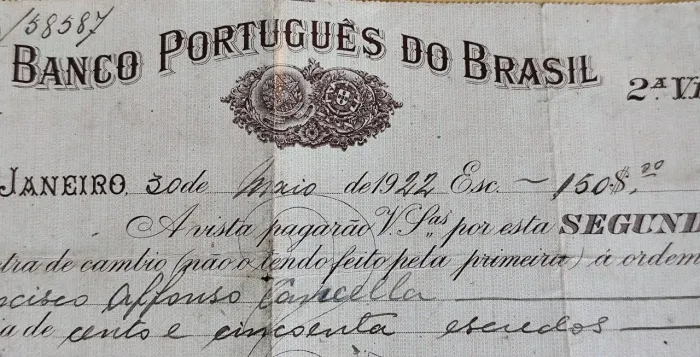 /58587
BANCO PORTUGUÊS DO BRASIL
2ª VI
JANEIRO, 30 de Maio de 1922 Esc. ~ 150$,00
A vista pagarão V. Sas por esta SEGUND
etra de cambio (não o tendo feito pela primeira) á ordem
ncisco Affonso Cancella
a de cento e cincoenta escudos